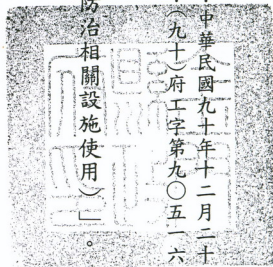 中華民國九十年十二月二十
（九十）府工字第九〇五一六
防治相關設施使用）」。